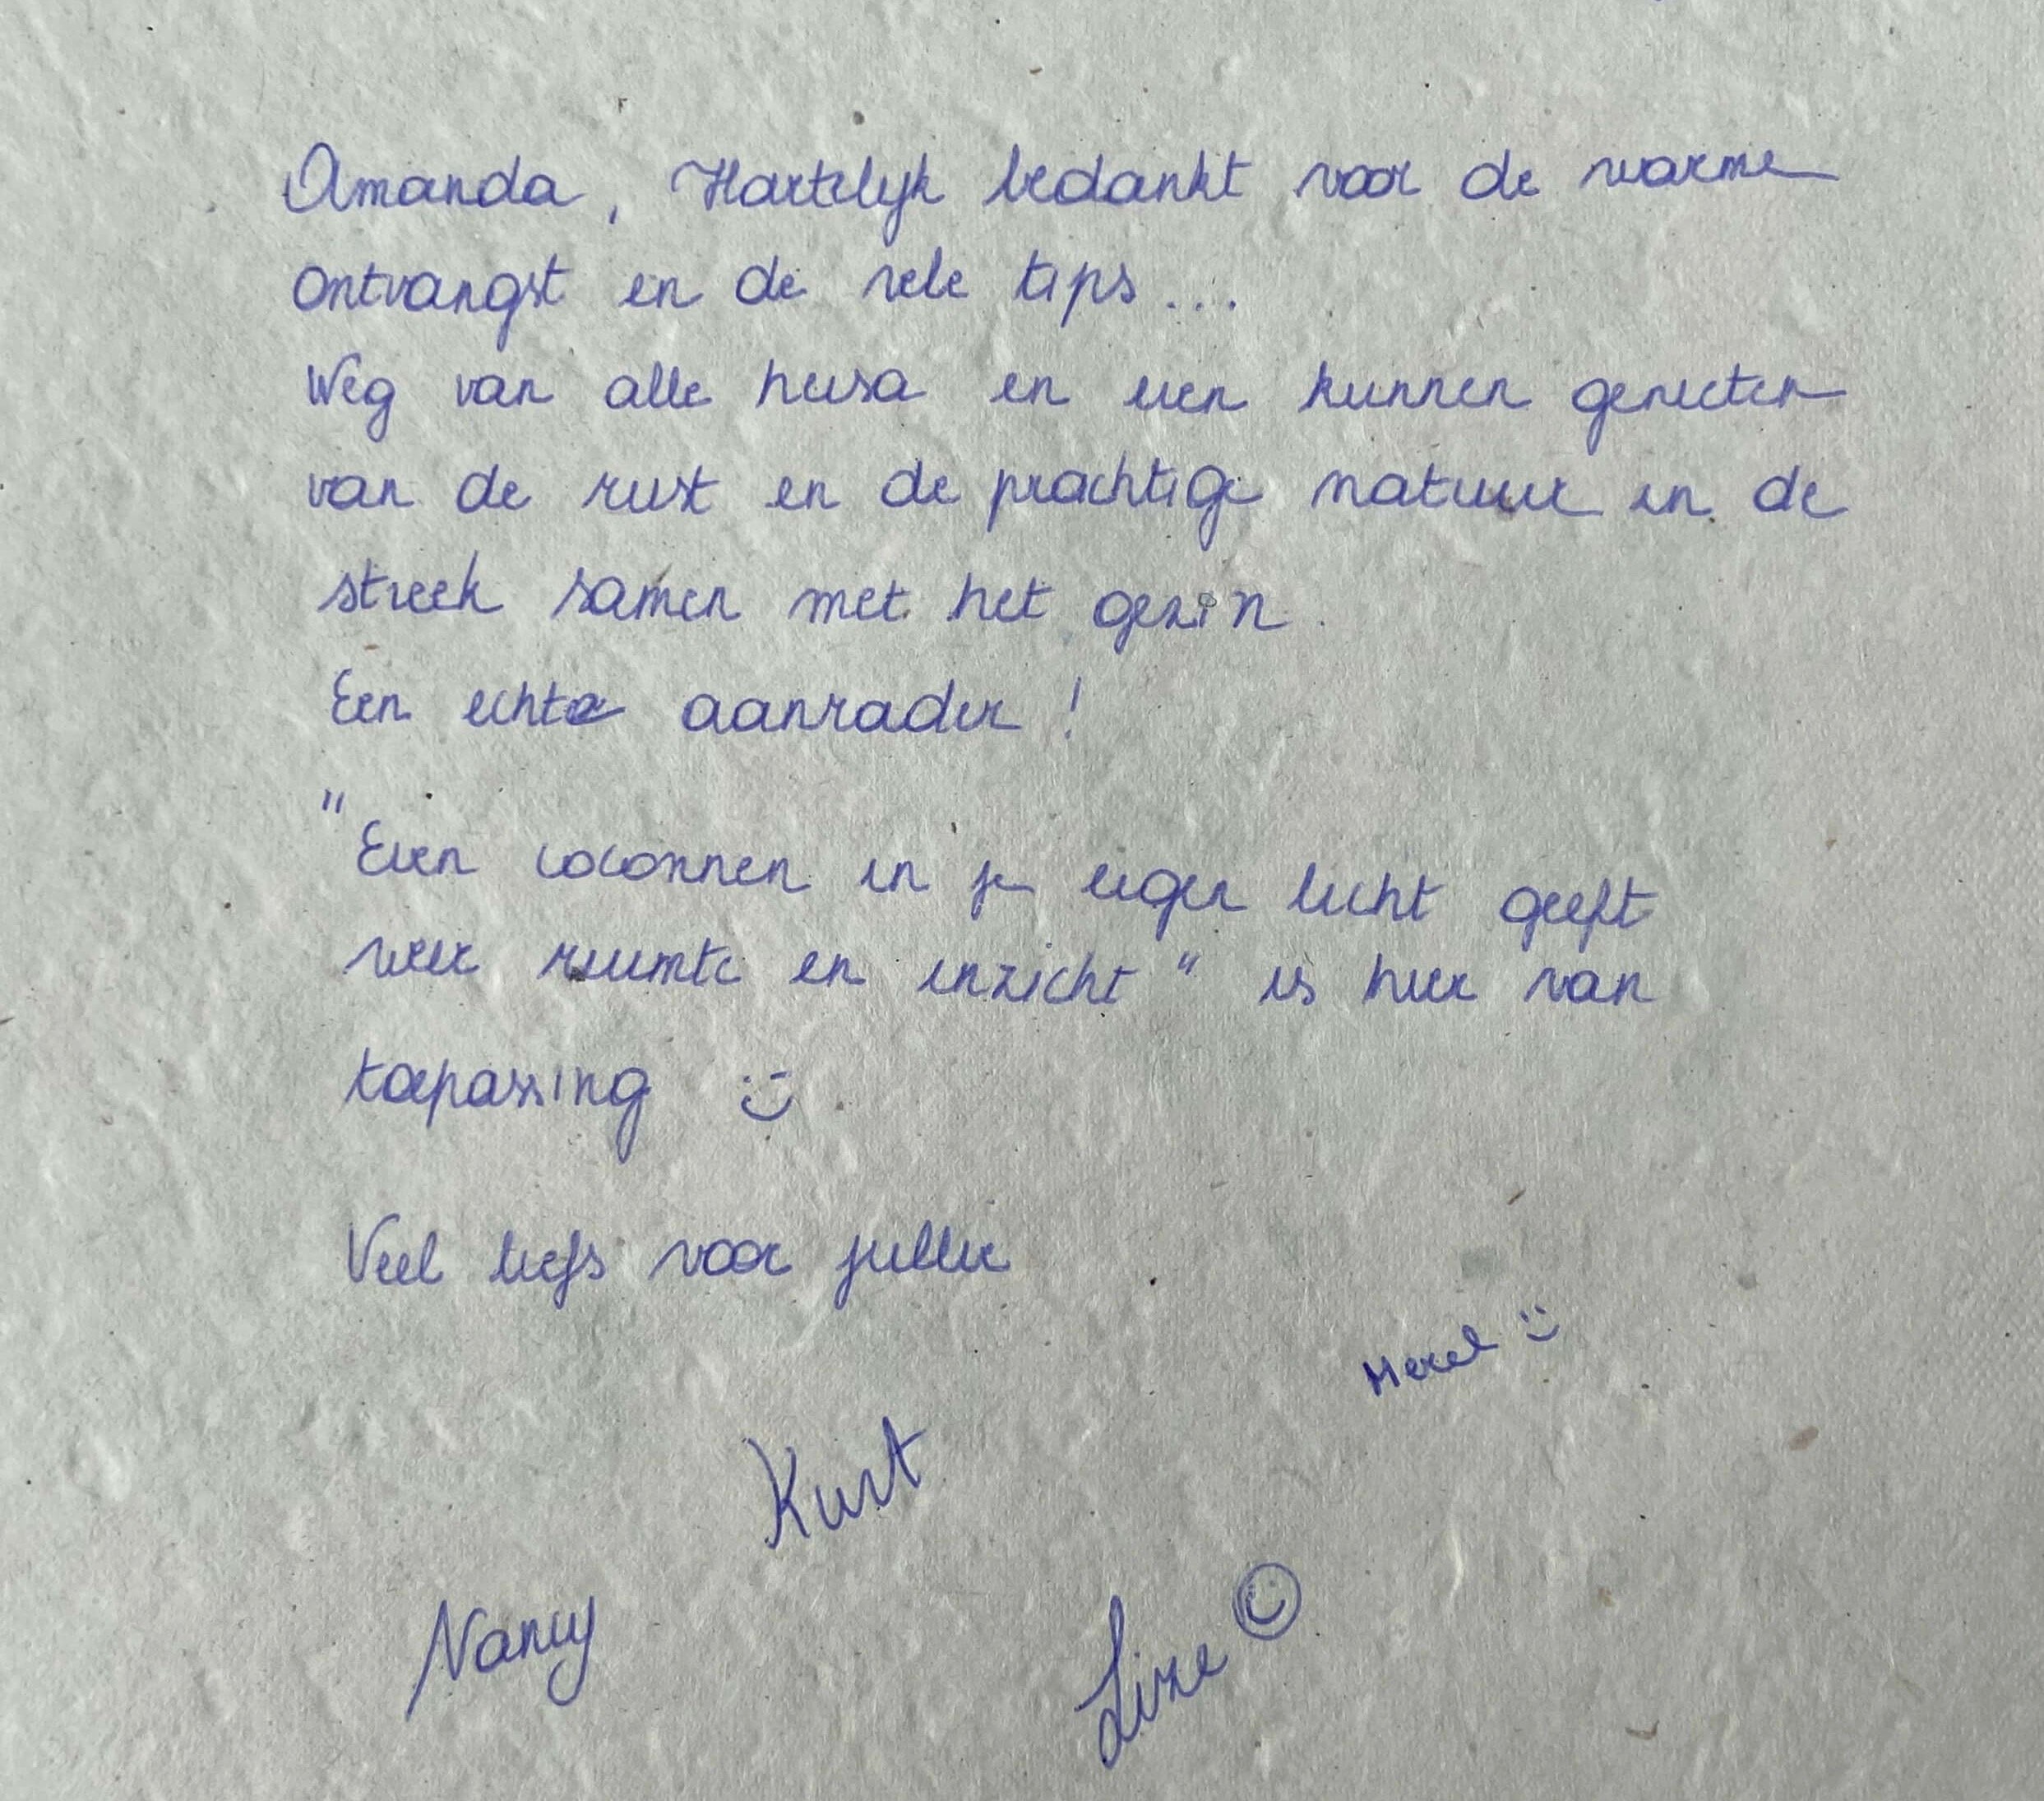 Amanda, Hartelijk bedankt voor de warme
ontvangst en de vele tips...
Weg van alle heisa en even kunnen genieten
van de rust en de prachtige natuur in de
streek samen met het gezin.
Een echte aanrader!
"Even coconnen in je eigen licht geeft
weer ruimte en inzicht" is hier van
toepassing :)
Veel liefs voor jullie
Merel :)
Kurt
Nancy
Lize ☺